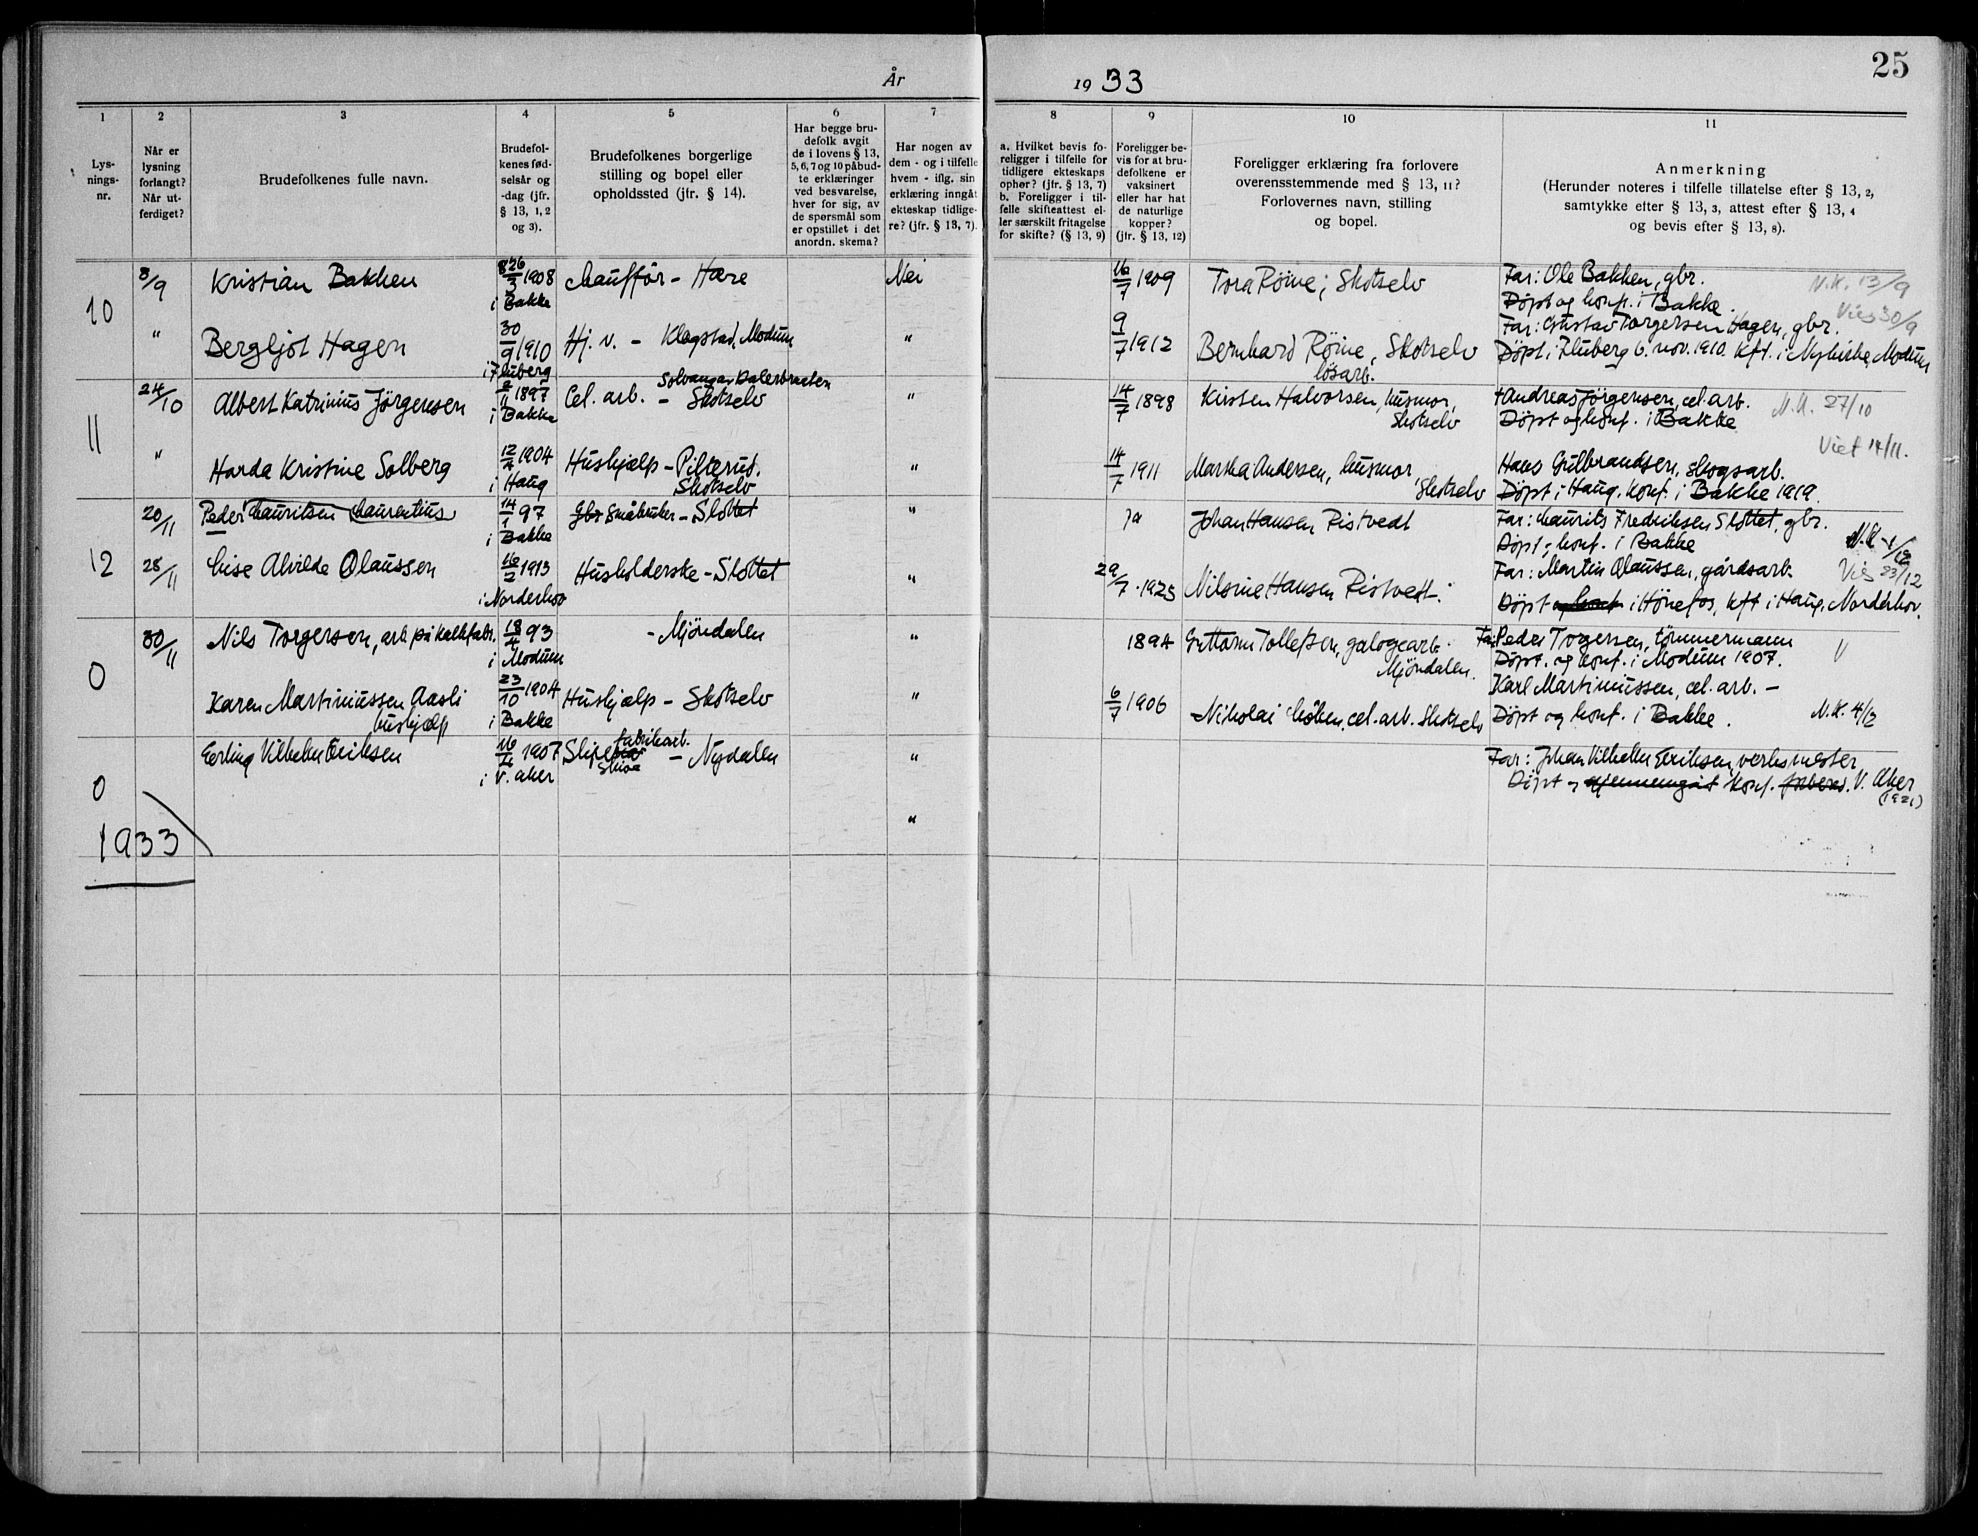 År 1933
25
1
2
3
4
5
6
7
8
9
10
11
Lys-
nings-
nr.
Når er
lysning
forlangt?
Når ut-
ferdiget?
Brudefolkenes fulle navn.
Brudefol-
kenes fød-
selsår og
-dag (jfr.
§ 13, 1, 2
og 3).
Brudefolkenes borgerlige
stilling og bopel eller
opholdssted (jfr. § 14).
Har begge bru-
defolk avgit
de i lovens § 13,
5, 6, 7 og 10 påbud-
te erklæringer
ved besvarelse,
hver for sig, av
de spørsmål som
er opstillet i det
anordn. skema?
Har nogen av
dem - og i tilfelle
hvem - iflg. sin
erklæring inngåt
ekteskap tidlige-
re? (jfr. § 13, 7).
a. Hvilket bevis fo-
religger i tilfelle for
tidligere ekteskaps
ophør? (jfr. § 13, 7)
b. Foreligger i til-
felle skifteattest el-
ler særskilt fritagelse
for skifte? (§ 13, 9)
Foreligger be-
vis for at bru-
defolkene er
vaksinert
eller har hat
de naturlige
kopper?
(jfr. § 13, 12)
Foreligger erklæring fra forlovere
overensstemmende med § 13, 11?
Forlovernes navn, stilling
og bopel.
Anmerkning
(Herunder noteres i tilfelle tillatelse efter § 13, 2,
samtykke efter § 13, 3, attest efter § 13, 4
og bevis efter § 13, 8).
10
8/9
Kristian Bakken
26/3 1908
i Bakke
Chaufför - Hære
Nei
16/7 1909
Tora Röine; Skotselv
Far: Ole Bakken, gbr.
Döpt og konf. i Bakke.
N.K. 13/9
Vies 30/9
"
Bergljot Hagen
30/9 1910
i Fluberg
Hj. v. - Klagstad, Modum
"
9/7 1912
Bernhard Röine, Skotselv
lösarb.
Far: Gustav Torgersen Hagen, gbr.
Döpt i Fluberg 6. nov. 1910. Kft. i Nykirke, Modum
11
24/10
Albert Katrinius Jörgensen
2/11 1897
i Bakke
Solvangen Dalerbraaten
Cel. arb. - Skotselv
"
14/7 1898
Kirsten Halvorsen, husmor,
Skotselv
Andreas Jörgensen, cel. arb.
Döpt og konf. i Bakke
N.K. 27/10
Viet 14/11.
"
Harda Kristine Solberg
12/4 1904
i Haug
Hushjælp - Pilterud.
Skotselv
"
14/7 1911
Martha Andersen, husmor,
Skotselv
Hans Gulbrandsen, skogsarb.
Döpt i Haug. Konf. i Bakke 1919.
12
20/11
Peder Lauritsen Laurentius
14/1 97
i Bakke
Gbr Småbruker - Slottet
"
Ja
Johan Hansen Ristvedt
Far: Laurits Fredriksen Slottet, gbr.
Döpt og konf. i Bakke
28/11
Lise Alvilde Olaussen
16/2 1913
i Norderhov
Husholderske - Slottet
"
29/7 1925
Nilsine Hansen Ristvedt.
Far: Martin Olaussen, gårdsarb.
Vies 23/12
Döpt og konf i Hönefos, kft i Haug, Norderhov.
0
30/11
Nils Torgersen, arb. på kalkfabr.
18/4 93
i Modum
- Mjöndalen
"
1894
Guttorm Tollefsen, galogearb.
Mjöndalen.
Far: Peder Torgersen, tömmermann
Döpt. og konf. i Modum 1907.
Karen Martinussen Aasli
hushjælp
23/10 1904
i Bakke
Hushjælp - Skotselv
"
6/7 1906
Nikolai Löken, cel. arb. Skotselv
Karl Martinussen, cel. arb. -
Döpt og konf. i Bakke.
N.K. 4/12
0
Erling Vilhelm Eriksen
1907
i V. Aker
fabrikarb.
- Nydalen
"
Far: Johan Vilhelm Eriksen, verksmester
Döpt og gjennemgåt konf. forbered. V. Aker
(1921)
"
1933